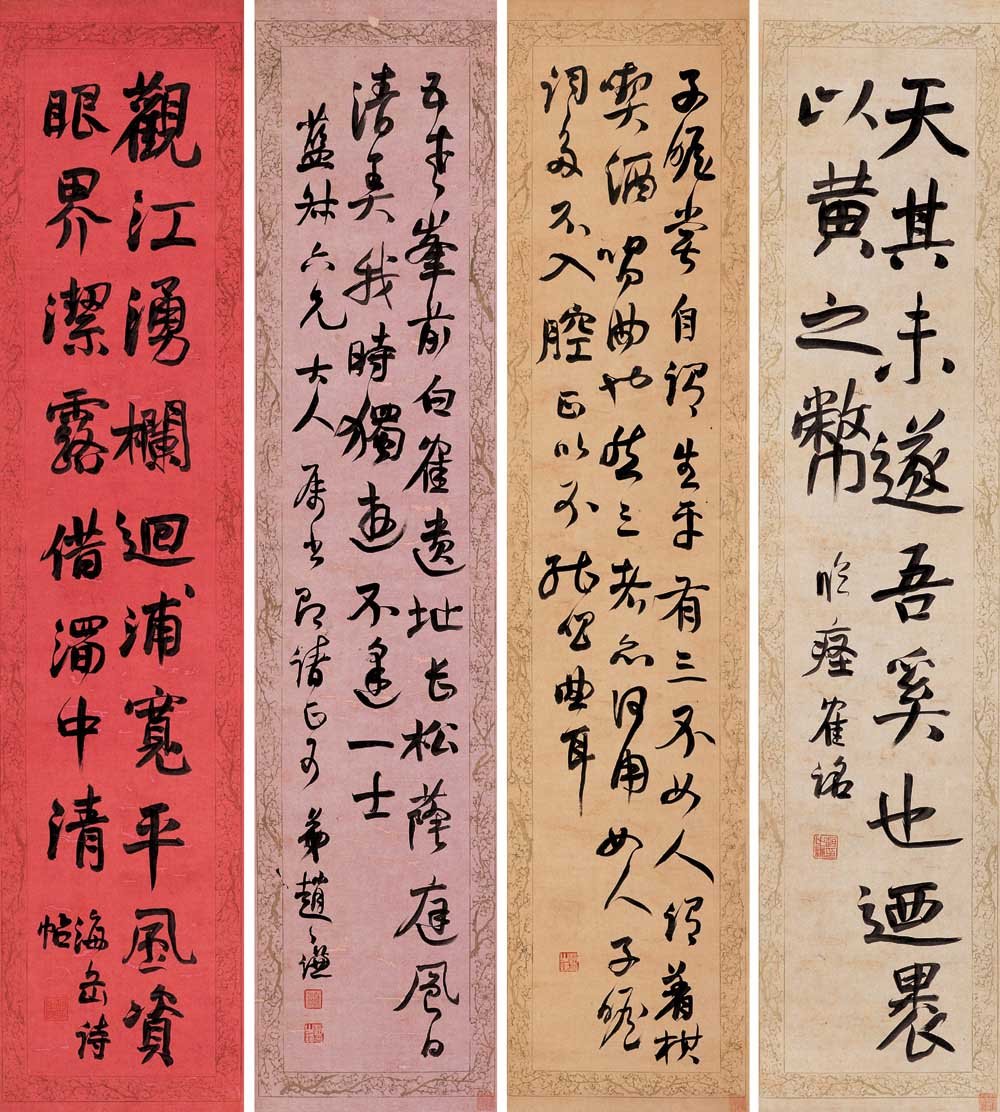 天其未遂吾奚也迺裹
以黄之幣
臨瘞寉銘
子瞻嘗自謂生平有三不如人謂着棋
喫酒唱曲也然三者亦何用如人子瞻
詞多不入腔正以不能唱曲耳
五老峯前白寉遺址長松蔭庭風日
清美我時獨遊不逢一士
藍叔六兄大人屬書即請正可 弟趙之謙
觀江湧欄迴浦寬平風資
眼界潔露借濁中清
海岳詩
帖